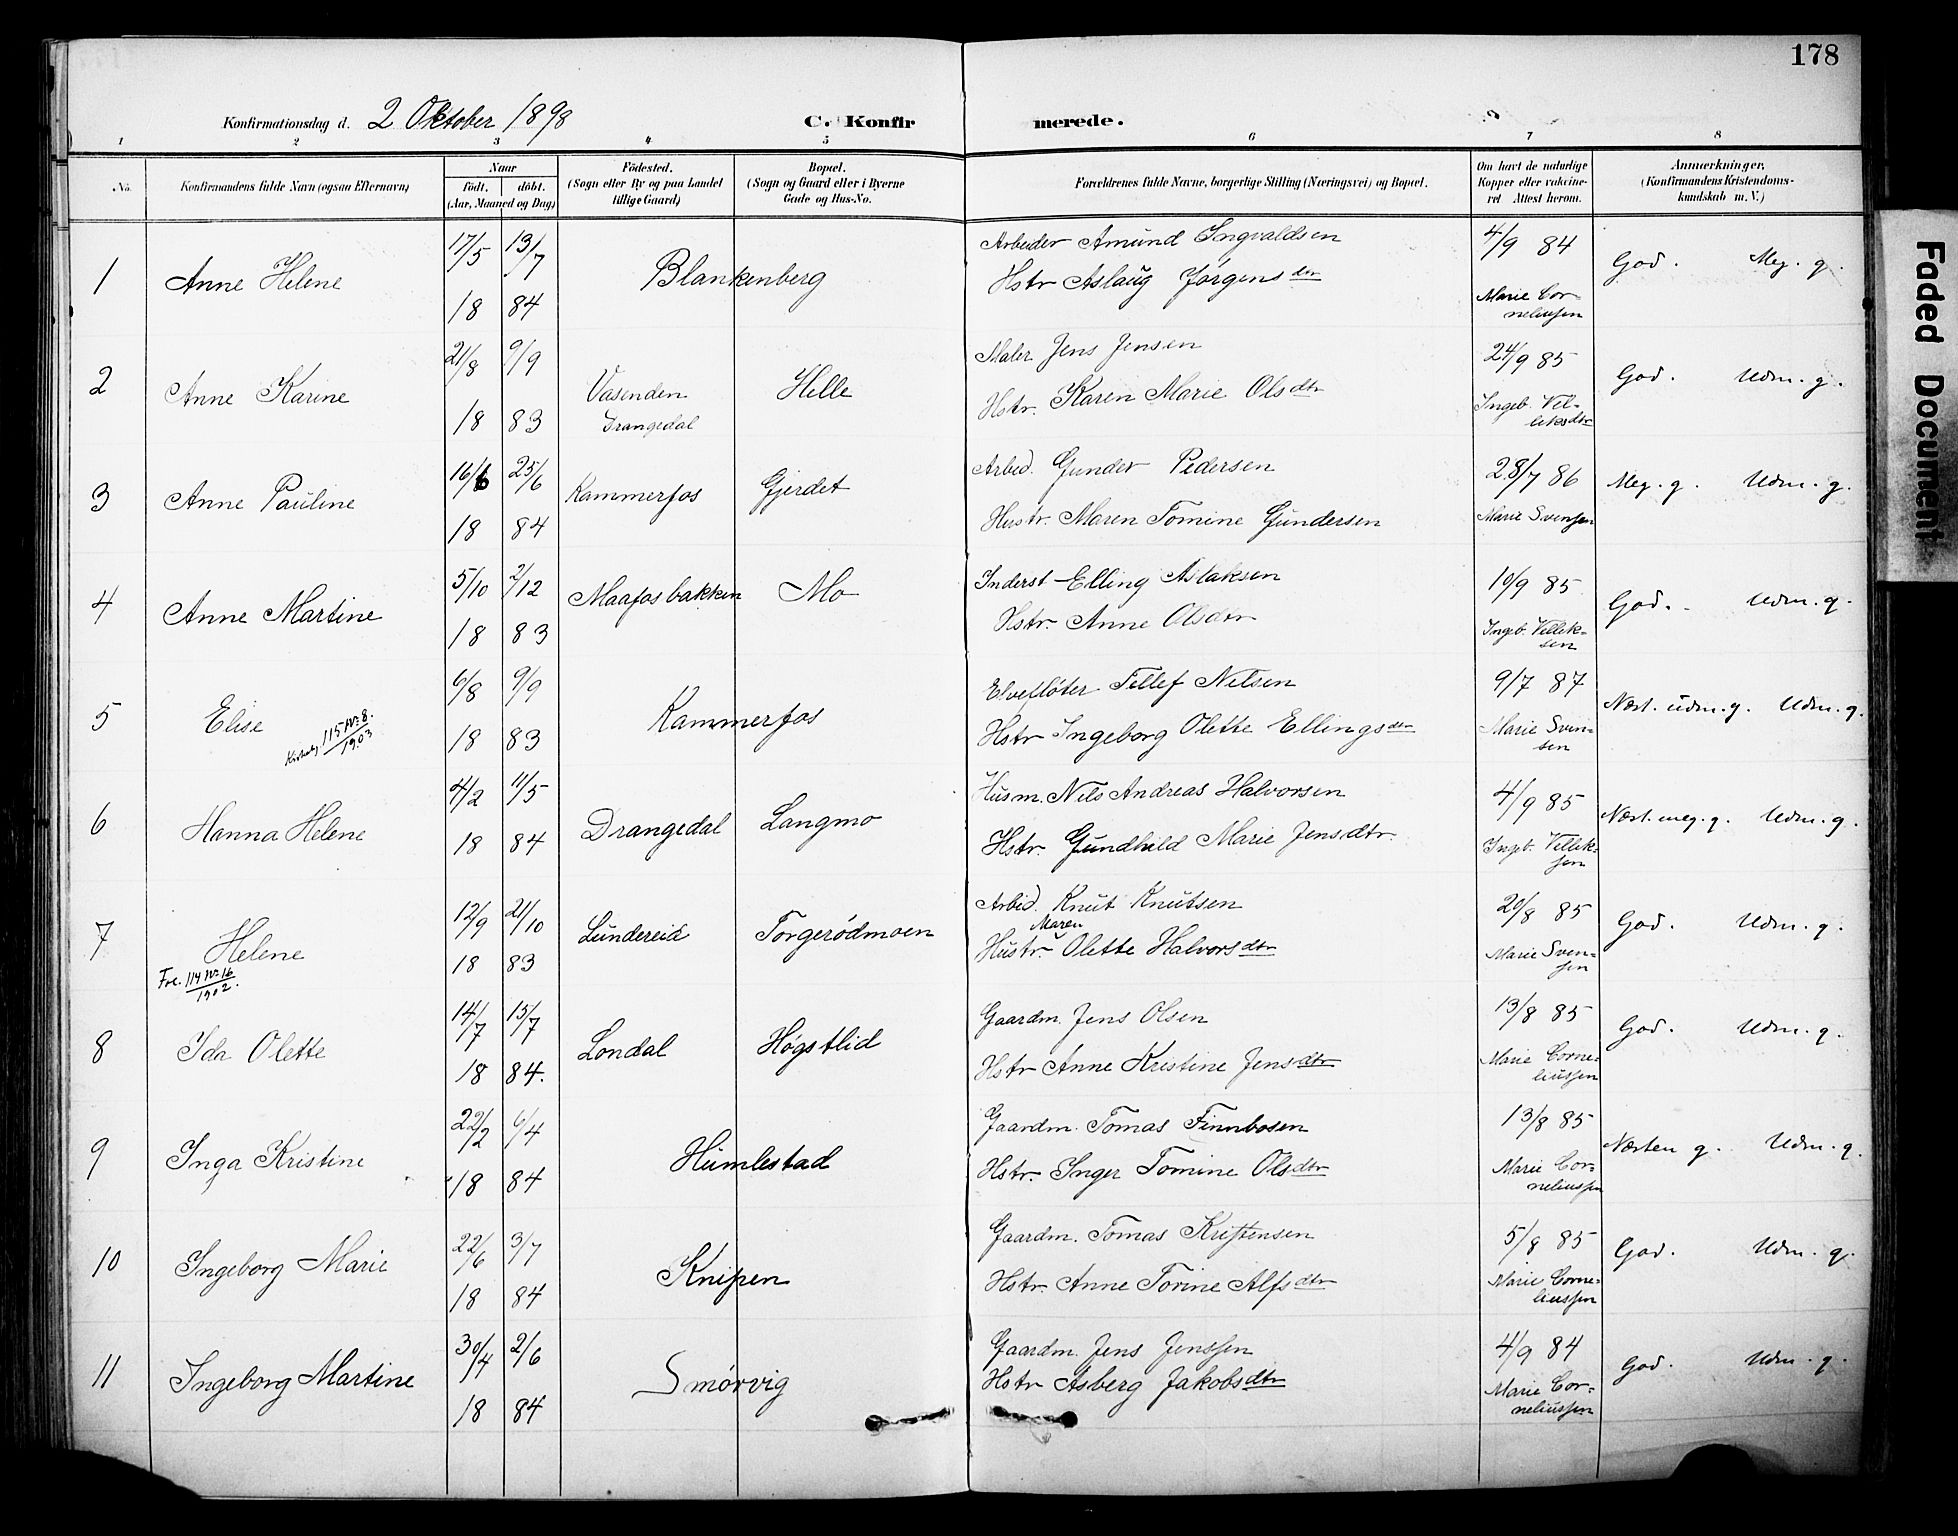 178
Konfirmationsdag d. 2 Oktober 1898 C. Konfirmerede.
1 2 3 4 5 6 7 8
No. Konfirmandens fulde Navn (ogsaa Efternavn)
Naar
födt. döbt.
(Aar, Maaned og Dag)
Födested.
(Sogn eller By og paa Landet
tillige Gaard)
Bopæl.
(Sogn og Gaard eller i Byerne
Gade og Hus-No.
Forældrenes fulde Navne, borgerlige Stilling (Næringsvei) og Bopæl.
Om havt de naturlige
Kopper eller vakcine-
ret Attest herom.
Anmærkninger.
(Konfirmandens Kristendoms-
kundskab m. V.)
17/5 13/7 Arbeider Amund Ingvaldsen 4/9 84
1 Anne Helene Blankenberg Hstr Aslaug Jørgensdtr God. Meg. g.
18 84 Marie Cor-
neliussen
21/8 9/9 Maler Jens Jensen 24/9 85
2 Anne Karine Vasenden Helle Hstr. Karen Marie Olsdtr God. Udm. g.
18 83 Drangedal Ingeb. Vel-
leksdtr
16/6 25/6 Arbeid. Gunder Pedersen 28/7 86
3 Anne Pauline Kammerfos Gjerdet Meg. g. Udm. g.
18 84 Hustr. Maren Tomine Gundersen Marie Svensen
5/10 2/12 Inderst Elling Aslaksen 19/9 85
4 Anne Martine Maafosbakken Mo God. Udm. g.
18 83 Hstr. Anne Olsdtr Ingeb. Vellek-
sen
6/8 9/9 Elvefløter Tellef Nilsen 9/7 87
5 Elise Kammerfos Næst. udm. g. Udm. g.
115 No 8.
1903
18 83 Hstr Ingeborg Olette Ellingsdtr Marie Sven-
sen
4/2 11/5 Husm. Nils Andreas Halvorsen 4/9 85
6 Hanna Helene Drangedal Langmo Næst. meg. g. Udm. g.
18 84 Hstr. Gundhild Marie Jensdtr. Ingeb. Vellek-
sen
12/9 21/10 Arbid. Knut Knutsen 20/8 85
Maren
7 Helene Lundereid Torgerødmoen God. Udm. g.
18 83 Hustr. Olette Halvorsdtr Marie Sven-
sen
Fre. 114 No 16
1902.
14/7 15/7 Gaardm. Jens Olsen 13/8 85
8 Ida Olette Londal Høgstlid God. Udm. g.
18 84. Hstr Anne Kristine Jensdtr Marie Corne-
liussen
22/2 6/4 Gaardm. Tomas Finnbosen 13/8 85
9 Inga Kristine Humlestad Næsten g. Udm. g.
18 84 Hstr. Inger Tomine Olsdtr Marie Cor-
neliussen
22/6 3/7 Gaardm. Tomas Kristensen 5/8 85
10 Ingeborg Marie Knipen God. Udm. g.
18 84 Hstr. Anne Torine Alfsdtr Marie Corne-
liussen
30/4 2/6 Gaardm. Jens Jenssen 4/9 84
11 Ingeborg Martine Smørvig God. Udm. g.
18 84 Hstr Asberg Jakobsdtr Marie Cor-
neliussen
Faded Document